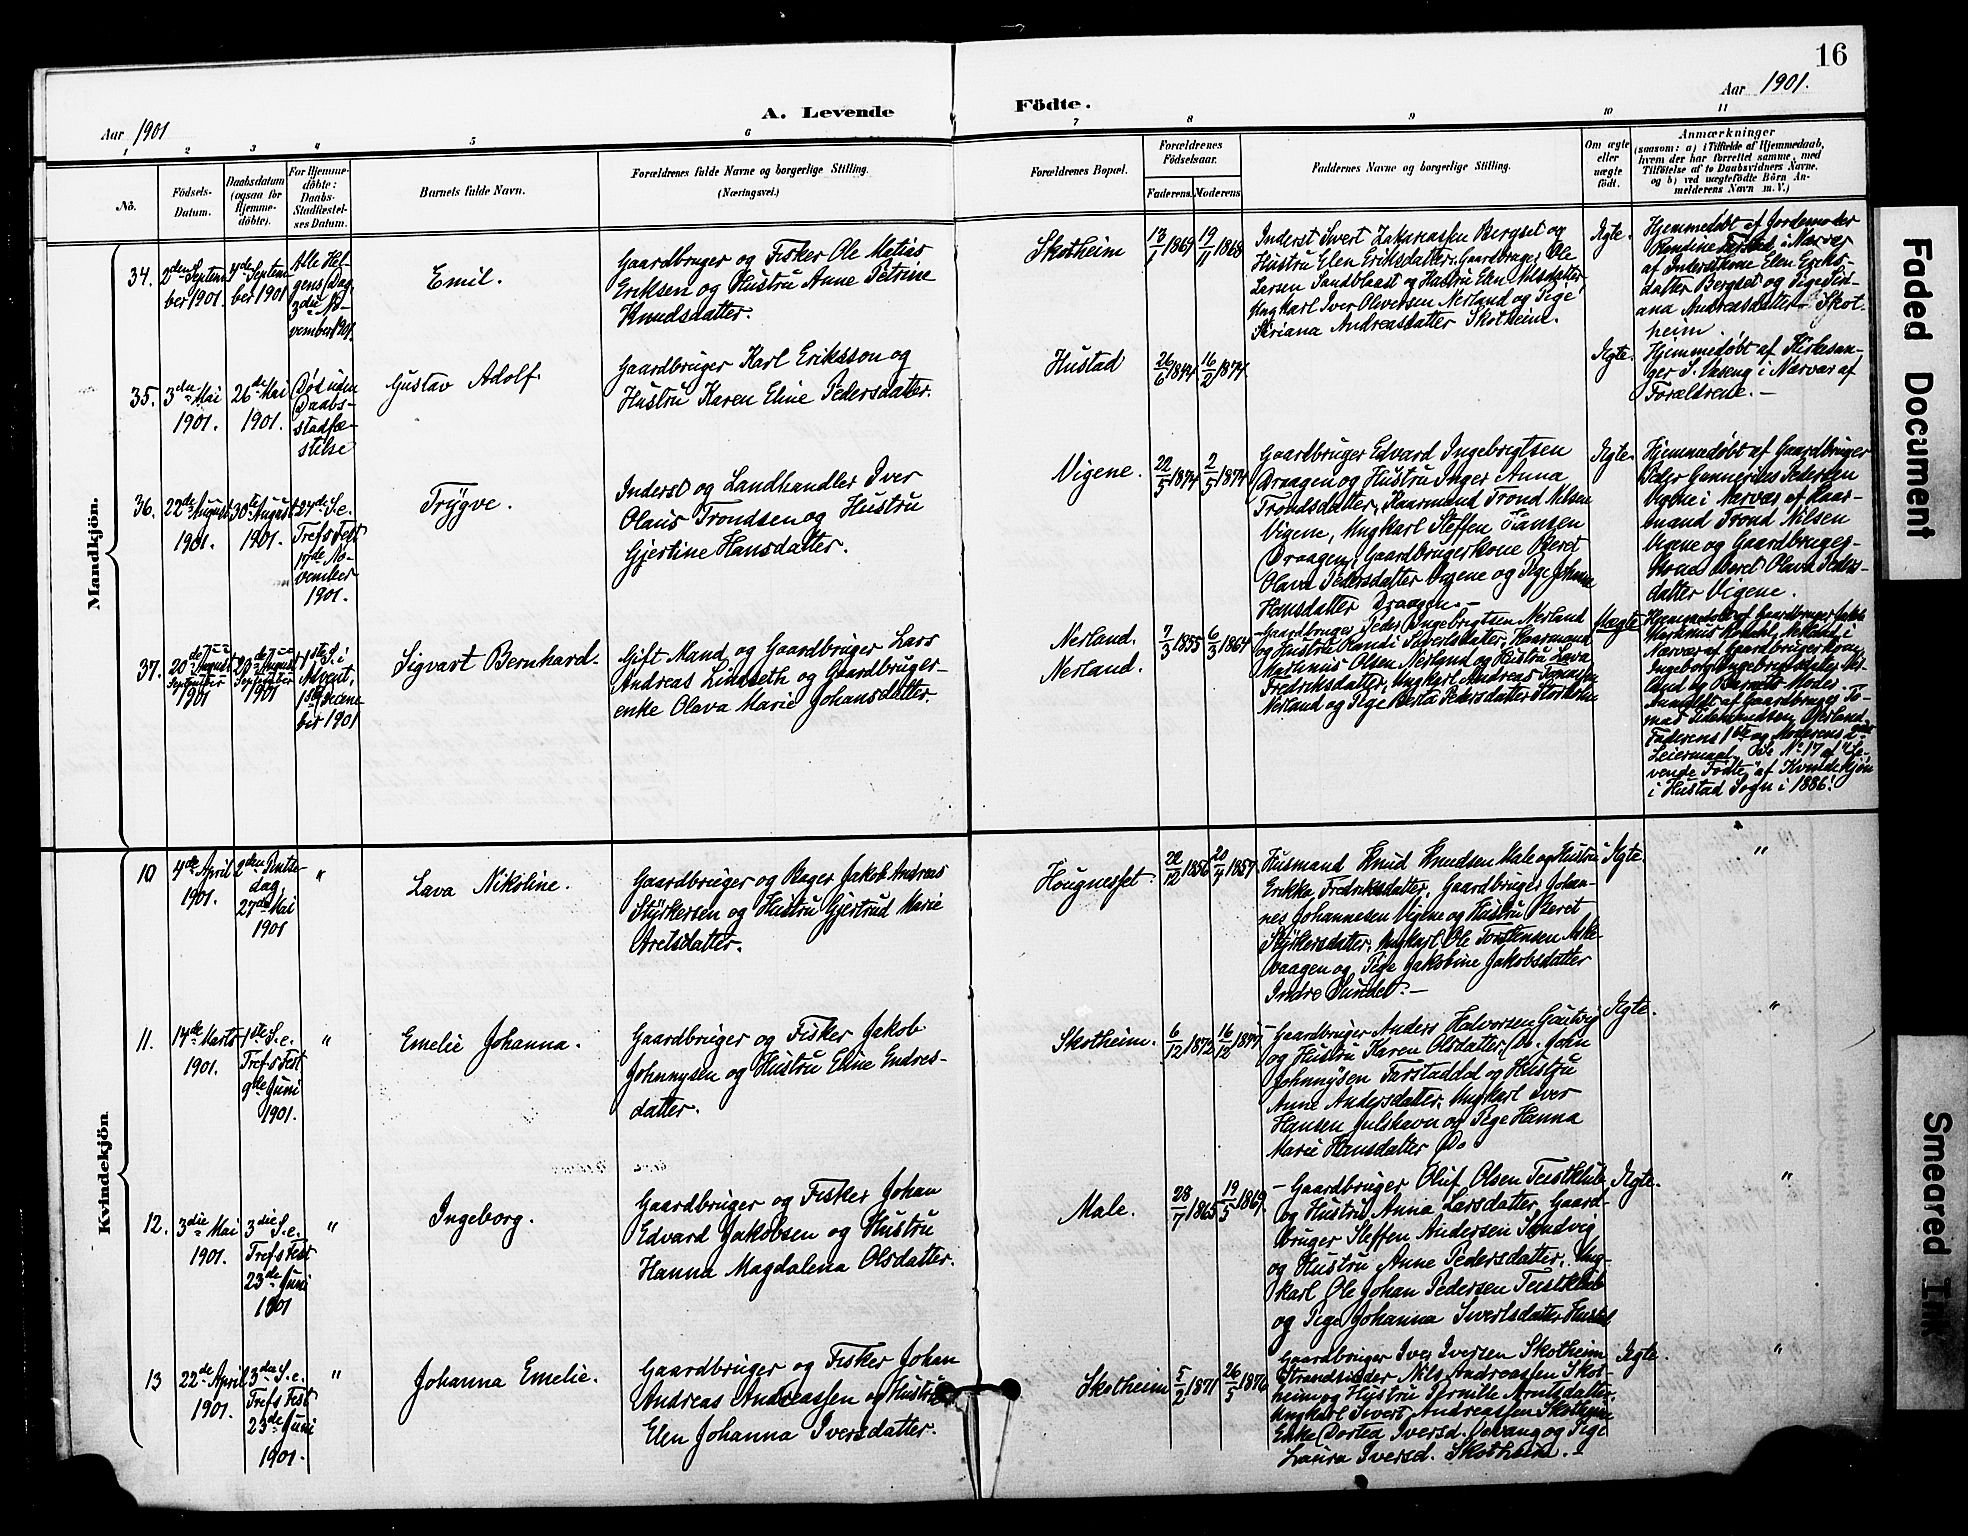 16
Aar 1901.
A. Levende Födte.
Aar 1901
1 2 3 4 5 6 7 8 9 10 11
No.
Födsels-
Datum.
Daabsdatum
(ogsaa for
Hjemme-
döbte).
For Hjemme-
döbte:
Daabs-
Stadfæstel-
ses Datum.
Barnets fulde Navn.
Forældrenes fulde Navne og borgerlige Stilling.
(Næringsvei.)
Forældrenes Bopæl.
Forældrenes
Födselsaar.
Faderens. Moderens.
Faddernes Navne og borgerlige Stilling.
Om ægte
eller
uægte
födt.
Anmærkninger
(saasom: a) i Tilfælde af Hjemmedaab,
hvem der har forrettet samme, med
Tilföielse af to Daabsvidners Navne.
og b) ved uægtefödte Börn An-
melderens Navn m. V.)
Mandkjön.
34.
2den Septem-
ber 1901
4de Septem-
ber 1901
Alle Hel-
gens Dag
3die No-
vember 1901.
Emil.
Gaardbruger og Fisker Ole Matias
Eriksen og Hustru Anne Petrine
Knudsdatter.
Skotheim
13/1 1869
19/11 1868
Inderst Sivert Zakariassen Bergset og
Hustru Elen Eriksdatter, Gaardbruger Ole
Larsen Sandblaast og Hustru Elen Nilsdatter,
Ungkarl Iver Oliversen Nerland og Pige
Andreasdatter Skotheim.
Ægte.
Hjemmedøbt af Jordemoder
i Nærvær
af Inderstkone Elen Eriks-
datter Bergset og Pige
Andreasdatter Skot-
heim
35.
3die Mai
1901.
26de Mai
1901.
Død uden
Daabs-
stadfæ-
stelse
Gustav Adolf.
Gaardbruger Karl Eriksson og
Hustru Karen Eline Pedersdatter.
Hustad
26/6 1844
16/2 1874
Ægte.
Hjemmedøbt af Kirkesan-
ger S. i Nærvær af
Forældrene. -
36.
22de August
1901.
30te August
1901.
24de S. e.
Tref. Fest
17de No-
vember
1901.
Trygve.
Inderst og Landhandler Iver
Olaus Trondsen og Hustru
Gjertine Hansdatter.
Vigene.
22/5 1874
2/5 1874
Gaardbruger Edvard Ingebrigtsen
Draagen og Hustru Inger Anna
Trondsdatter, Kaarmand Trond Nilsen
Vigene, Ungkarl Steffen Hansen
Draagen, Gaardbrugerkone Beret
Olava Pedersdatter Vigene og Pige Johanna
Hansdatter Draagen. -
Ægte.
Hjemmedøbt af Gaardbruger
Peder Pedersen
Vigene i Nærvær af Kaar-
mand Trond Nilsen
Vigene og Gaardbruger-
kone Beret Olava Peders-
datter Vigene.
37.
20de
September
1901
29de
September
1901
1ste S. i
Advent,
1ste Decem-
ber 1901
Sigvart Bernhard.
Gift Mand og Gaardbruger Lars
Andreas og Gaardbruger-
enke Olava Marie Johansdatter.
Nerland.
Nerland.
7/3 1855
6/3 1864
Gaardbruger Peder Ingebrigtsen Nerland
og Hustru Randi Sivertsdatter, Kaarmand
Martinus Olsen Nerland og Hustru Lava
Fredriksdatter, Ungkarl Andreas
Nerland og Pige Pedersdatter
Uægte
Hjemmedøbt af Gaardbruger
Nærvær af Gaardbrugerkone
Ingeborg Ingebrigtsdatter Ner-
land og Barnets Moder.
Anmeldt af Gaardbruger To-
mas Nerland.
Faderens 1ste og Moderens 2det
Leiermaal. Se No 17 af "Le-
vende Födte" af Kvindekjøn
i Hustad Sogn i 1886.
Kvindekjön
10
4de April
1901.
2den Pintse-
dag,
27de Mai
1901
"
Lava Nikoline.
Gaardbruger og Bager Jakob Andreas
Styrkersen og Hustru Gjertrud Marie
Aretsdatter.
Hougnesset.
22/12 1856
20/4 1857
Husmand Knud Knudsen Male og Hustru
Erikka Fredriksdatter, Gaardbruger Johan-
nes Johannesen Vigene og Hustru Beret
Styrkersdatter, Ungkarl Ole Torstensen Aske-
vaagen og Pige Jakobine Jakobsdatter
Indre Sundet. -
Ægte.
"
11.
14de Marts
1901.
1ste S. e.
Tref. Fest
9de Juni
1901.
"
Emelie Johanna.
Gaardbruger og Fisker Jakob
Johnnysen og Hustru Eline Endres-
datter.
Skotheim.
6/12 1872
16/12 1877
Gaardbruger Anders Halvorsen Gautvig
og Hustru Karen Olsdatter, Do. John
Johnnysen Farstaddal og Hustru
Anne Andersdatter, Ungkarl Iver
Hansen Julshavn og Pige Hanna
Marie Hansdatter Do
Ægte.
"
12.
3die Mai
1901.
3die S. e.
Tref. Fest
23de Juni
1901
"
Ingeborg.
Gaardbruger og Fisker Johan
Edvard Jakobsen og Hustru
Hanna Magdalena Olsdatter.
Male.
28/7 1865
19/5 1869
- Gaardbruger Oluf Olsen Teistklub
og Hustru Anna Larsdatter, Gaard-
bruger Steffen Andersen Sandvig
og Hustru Anne Pedersdatter, Ung-
karl Ole Johan Pedersen Teistklub
og Pige Johanna Sivertsdatter Hustad
Ægte.
"
13
22de April
1901.
3die S. e.
Tref. Fest
23de Juni
1901.
"
Johanna Emelie.
Gaardbruger og Fisker Johan
Andreas Andreassen og Hustru
Elen Johanna Iversdatter.
Skotheim
5/2 1871
26/5 1876
Gaardbruger Iver Iversen Skotheim
Strandsidder Nils Andreassen Skot-
heim og Hustru Pernille Arntsdatter.
Ungkarl Sivert Andreassen Skotheim
Enke Dortea Iversd. og Pige
Laura Iversd. Skotheim. -
Ægte.
"
Faded Document
Smeared Ink